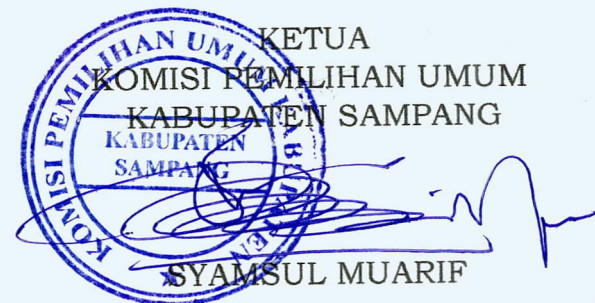 KETUA
KOMISI PEMILIHAN UMUM
KABUPATEN SAMPANG
KOMISI PEMILIHAN UMUM KABUPATEN
KABUPATEN
SAMPANG
SYAMSUL MUARIF